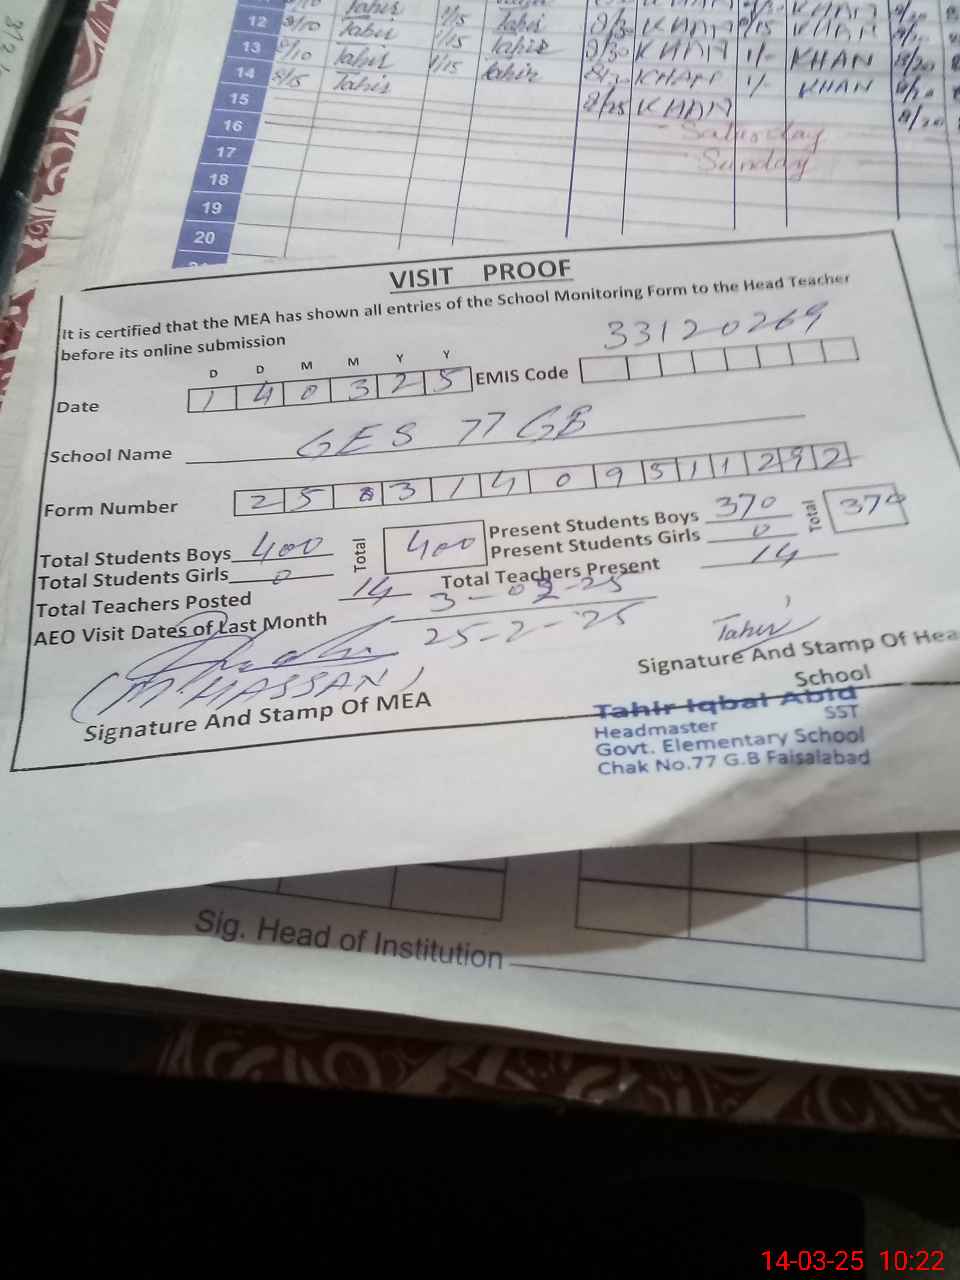 12 8/10 Tahir 7/15 Tahir 2/30 KHAN KHAN
13 Tahir 1/15 Tahir 2/30 KHAN 1/- KHAN 18/20
14 8/5 Tahir KHAN 1/- KHAN
15 2/25 KHAN 2/20
16 Saturday
17 Sunday
18
19
20
VISIT PROOF
It is certified that the MEA has shown all entries of the School Monitoring Form to the Head Teacher
before its online submission
D D M M Y Y
Date 1 4 0 3 2 5 EMIS Code 33120269
School Name GES 77 GB
Form Number 2 5 0 3 1 4 0 9 5 1 1 2 9 2
Total Students Boys 400 Total 400 Present Students Boys 370 Total 370
Total Students Girls 0 Present Students Girls 0
Total Teachers Posted 14 Total Teachers Present 14
AEO Visit Dates of Last Month 3-02-25
25-2-25
(M HASSAN) Tahir
Signature And Stamp Of MEA Signature And Stamp Of Hea
School
Tahir Iqbal Abid
Headmaster SST
Govt. Elementary School
Chak No.77 G.B Faisalabad
Sig. Head of Institution
14-03-25 10:22